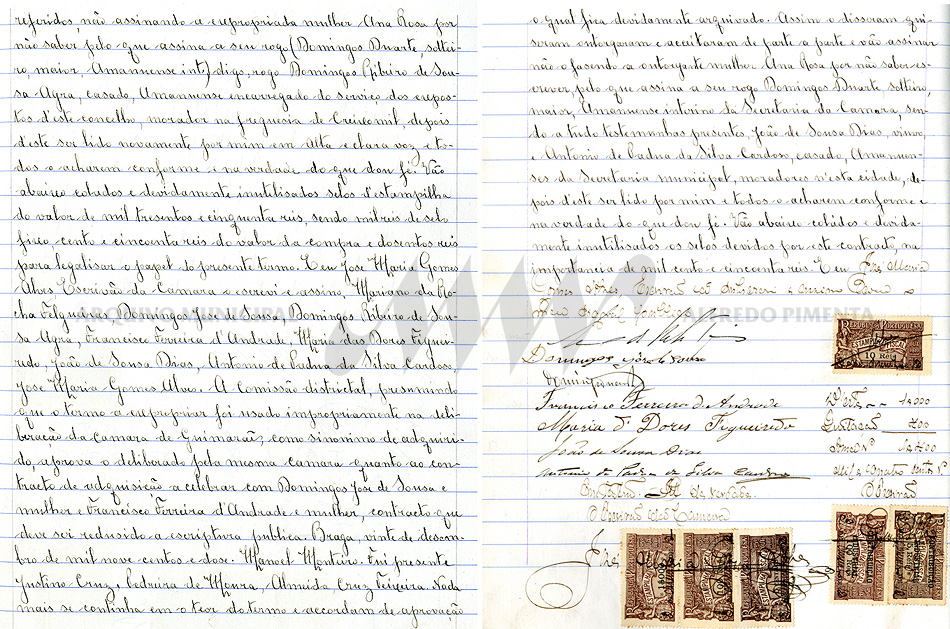 referidos, não assinando a expropriada mulher Ana Rosa por
não saber, pelo que assina a seu rogo (Domingos Duarte, soltei-
ro, maior, Amanuense int) digo, rogo Domingos Ribeiro de Sou-
sa Agra, casado, Amanuense encarregado do serviço dos expos-
tos d'este concelho, morador na freguesia de Creixomil, depois
d'este ser lido novamente por mim em alta e clara voz e to-
dos o acharam conforme e na verdade do que dou fé. Vão
abaixo colados e devidamente inutilisados selos d'estampilha
do valor de mil tresentos e cinquenta reis, sendo mil reis de selo
fixo, cento e cincoenta reis do valor da compra e dosentos reis
para legalisar o papel do presente termo. E eu José Maria Gomes
Alves Escrivão da Camara o escrevi e assino, Mariano da Ro-
cha Felgueiras, Domingos José de Sousa, Domingos Ribeiro de Sou-
sa Agra, Francisco Ferreira d'Andrade, Maria das Dores Figuei-
redo, João de Sousa Dias, Antonio de Padua da Silva Cardoso,
José Maria Gomes Alves. A comissão districtal, presumindo
que o termo a expropriar foi usado impropriamente na deli-
beração da Camara de Guimarães, como sinonimo de adquiri-
do, aprova o deliberado pela mesma camara quanto ao con-
tracto de adquisição a celebrar com Domingos José de Sousa e
mulher e Francisco Ferreira d'Andrade e mulher, contracto que
deve ser redusido a escriptura publica. Braga, vinte de desem-
bro de mil nove centos e dose. Manoel Monteiro. Fui presente
Justino Cruz, Moura, Almeida Cruz, Teixeira. Nada
mais se continha em o teor do termo e accordam de aprovação
o qual fica devidamente arquivado. Assim o disseram qui-
seram outorgaram e aceitaram de parte a parte e vão assinar
não o fasendo a outorgante mulher Ana Rosa por não saber es-
crever, pelo que assina a seu rogo Domingos Duarte solteiro,
maior, Amanuense interino da Secretaria da Camara, sen-
do a tudo testemunhas presentes, João de Sousa Dias, viuvo,
e Antonio de Padua da Silva Cardoso, casado, Amanuen-
ses da Secretaria municipal, moradores n'esta cidade, de-
pois d'este ser lido por mim e todos o acharem conforme e
na verdade do que dou fé. Vão abaixo colados e devida-
mente inutilisados os selos devidos por este contracto, na
importancia de mil cento e cincoenta reis. E eu José Maria
Gomes Alves Escrivão da
Domingos José de Sousa
Francisco Ferreira de Andrade
Maria d' Dores Figueiredo
João de Sousa Dias
Antonio de Padua da Silva Cardoso
O Escrivão da Camara
José Maria
ARQUIVO MUNICIPAL ALFREDO PIMENTA
REPUBLICA PORTUGUESA
ESTAMPILHA FISCAL
10 Reis